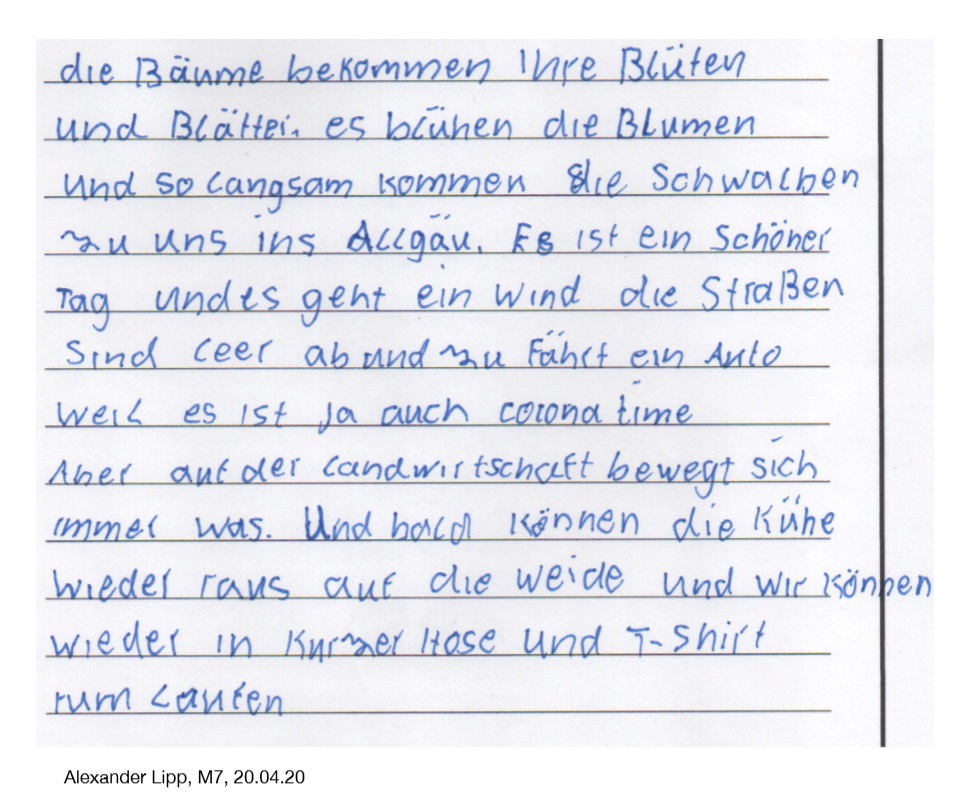 die Bäume bekommen Ihre Blüten
und Blätter. es blühen die Blumen
und so langsam kommen die Schwalben
zu uns ins Allgäu. Es ist ein Schöner
Tag und es geht ein wind die Straßen
Sind leer ab und zu Fährt ein Auto
weil es ist ja auch corona time
Aber auf der Landwirtschaft bewegt sich
immer was. Und bald können die Kühe
wieder raus auf die weide und wir können
wieder in Kurzer Hose und T-Shirt
rum Laufen
Alexander Lipp, M7, 20.04.20